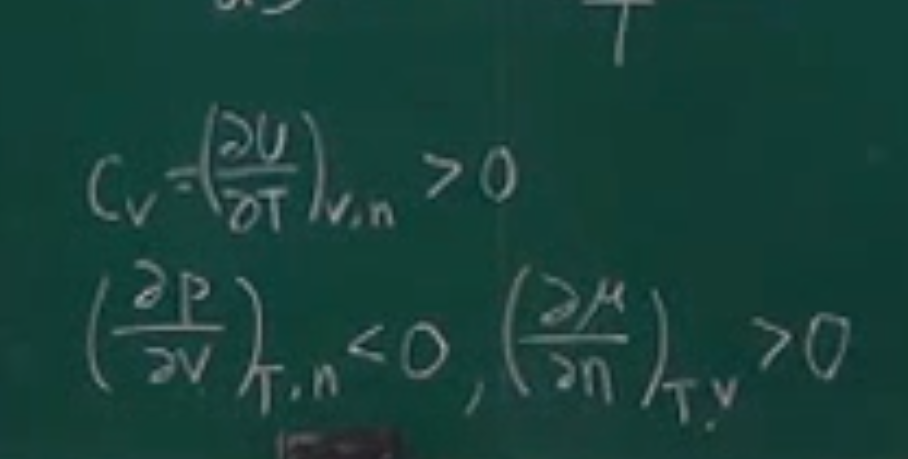 C_V = (∂U/∂T)_{V,n} > 0
(∂P/∂V)_{T,n} < 0, (∂μ/∂n)_{T,V} > 0